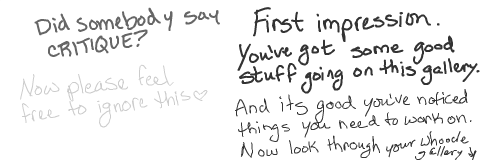 Did somebody say
CRITIQUE?
Now please feel
free to ignore this♡
First impression.
You've got some good
stuff going on this gallery.
And its good you've noticed
things you need to work on.
Now look through your whoole
gallery